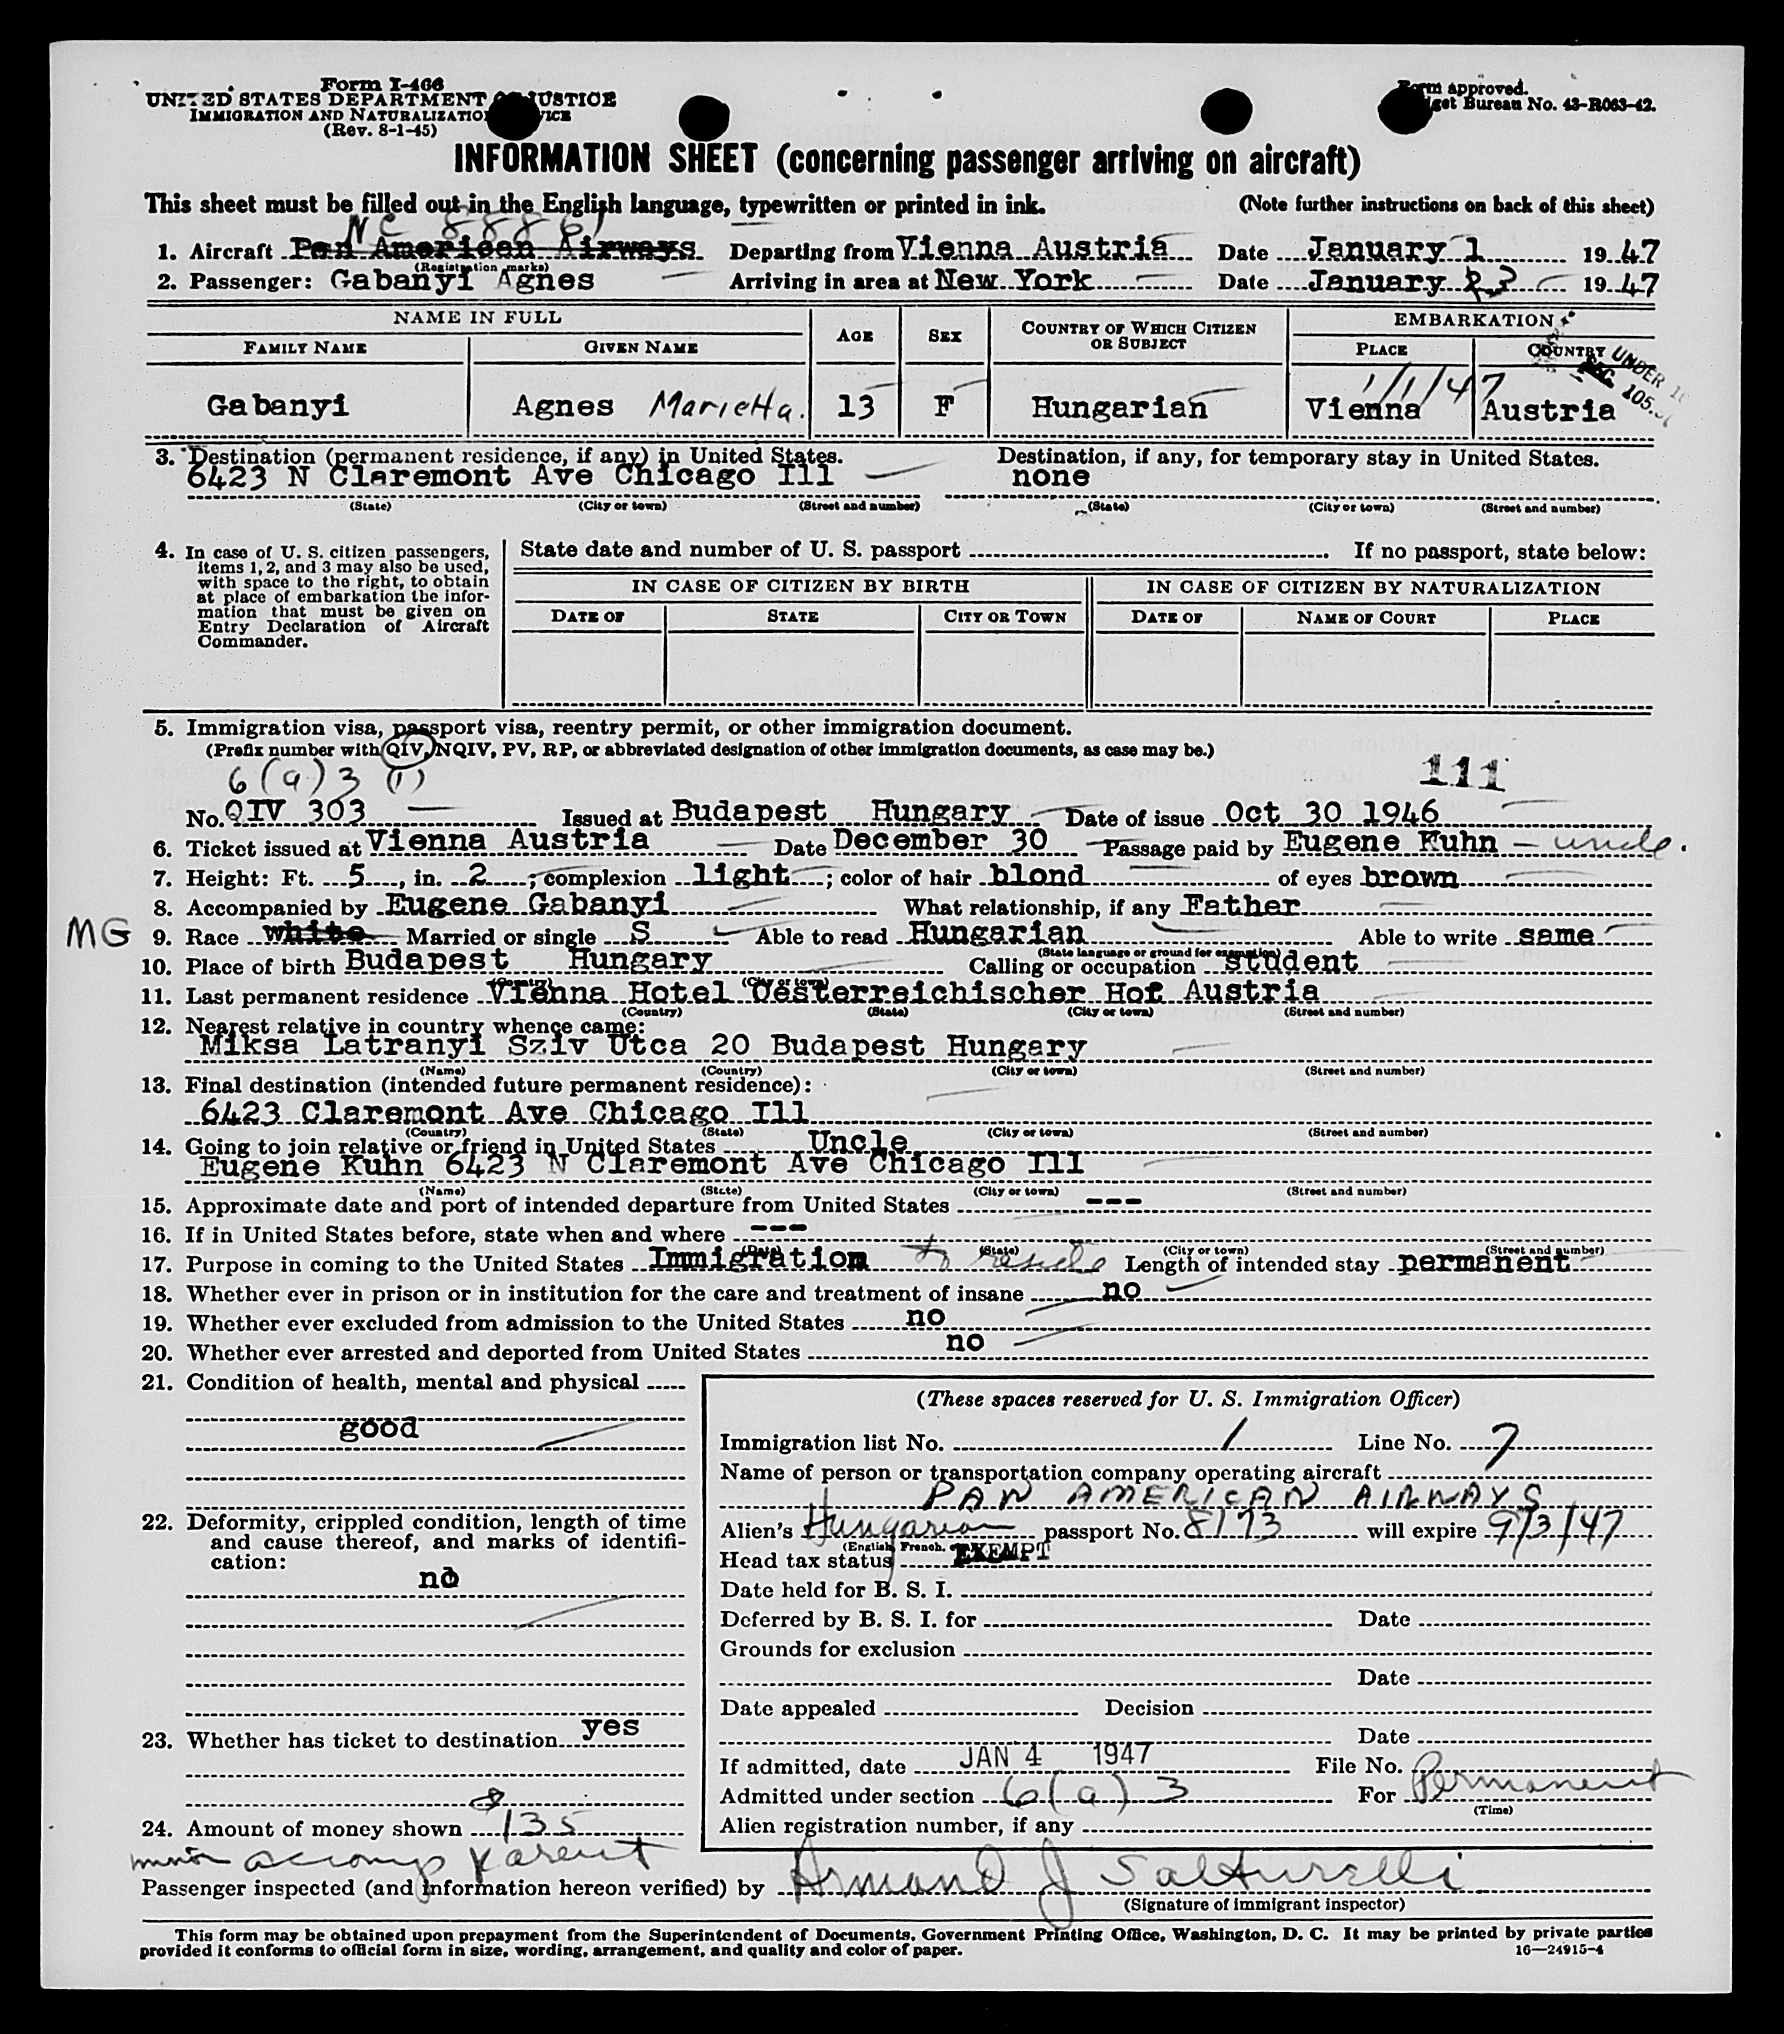 Form I-466
UNITED STATES DEPARTMENT OF JUSTICE
IMMIGRATION AND NATURALIZATION SERVICE
(Rev. 8-1-45)
Form approved.
Budget Bureau No. 43-R063-42.
INFORMATION SHEET (concerning passenger arriving on aircraft)
This sheet must be filled out in the English language, typewritten or printed in ink. (Note further instructions on back of this sheet)
NC 88861
1. Aircraft Pan American Airways Departing from Vienna Austria Date January 1 1947
(Registration marks)
2. Passenger: Gabanyi Agnes Arriving in area at New York Date January 3 1947
NAME IN FULL AGE SEX COUNTRY OF WHICH CITIZEN OR SUBJECT EMBARKATION
FAMILY NAME GIVEN NAME PLACE COUNTRY
UNDER
SEC. 105.
1/1/47
Gabanyi Agnes Marietta. 13 F Hungarian Vienna Austria
3. Destination (permanent residence, if any) in United States. Destination, if any, for temporary stay in United States.
6423 N Claremont Ave Chicago Ill none
(State) (City or town) (Street and number) (State) (City or town) (Street and number)
4. In case of U. S. citizen passengers, items 1, 2, and 3 may also be used, with space to the right, to obtain at place of embarkation the information that must be given on Entry Declaration of Aircraft Commander.
State date and number of U. S. passport If no passport, state below:
IN CASE OF CITIZEN BY BIRTH IN CASE OF CITIZEN BY NATURALIZATION
DATE OF STATE CITY OR TOWN DATE OF NAME OF COURT PLACE
5. Immigration visa, passport visa, reentry permit, or other immigration document.
(Prefix number with QIV, NQIV, PV, RP, or abbreviated designation of other immigration documents, as case may be.)
6(a)3 (1) 111
No. QIV 303 Issued at Budapest Hungary Date of issue Oct 30 1946
6. Ticket issued at Vienna Austria Date December 30 Passage paid by Eugene Kuhn - uncle.
7. Height: Ft. 5, in. 2; complexion light; color of hair blond of eyes brown
8. Accompanied by Eugene Gabanyi What relationship, if any Father
MG 9. Race white Married or single S Able to read Hungarian Able to write same
(State language or ground for exemption)
10. Place of birth Budapest Hungary Calling or occupation student
(Country) (City or town)
11. Last permanent residence Vienna Hotel Oesterreichischer Hof Austria
(Country) (State) (City or town) (Street and number)
12. Nearest relative in country whence came:
Miksa Latranyi Sziv Utca 20 Budapest Hungary
(Name) (Country) (City or town) (Street and number)
13. Final destination (intended future permanent residence):
6423 Claremont Ave Chicago Ill
(Country) (State) (City or town) (Street and number)
14. Going to join relative or friend in United States Uncle
Eugene Kuhn 6423 N Claremont Ave Chicago Ill
(Name) (State) (City or town) (Street and number)
15. Approximate date and port of intended departure from United States ---
16. If in United States before, state when and where ---
(Date) (State) (City or town) (Street and number)
17. Purpose in coming to the United States Immigration to reside Length of intended stay permanent
18. Whether ever in prison or in institution for the care and treatment of insane no
19. Whether ever excluded from admission to the United States no
20. Whether ever arrested and deported from United States no
21. Condition of health, mental and physical
good
22. Deformity, crippled condition, length of time and cause thereof, and marks of identification:
no
23. Whether has ticket to destination yes
24. Amount of money shown $135
minor accomp parent
(These spaces reserved for U. S. Immigration Officer)
Immigration list No. 1 Line No. 7
Name of person or transportation company operating aircraft
PAN AMERICAN AIRWAYS
Alien's Hungarian passport No. 8173 will expire 9/3/47
(English, French,
Head tax status EXEMPT
Date held for B. S. I.
Deferred by B. S. I. for Date
Grounds for exclusion
Date
Date appealed Decision
Date
If admitted, date JAN 4 1947 File No.
Admitted under section 6(a)3 For Permanent
(Time)
Alien registration number, if any
Passenger inspected (and information hereon verified) by Armand J
(Signature of immigrant inspector)
This form may be obtained upon prepayment from the Superintendent of Documents, Government Printing Office, Washington, D. C. It may be printed by private parties
provided it conforms to official form in size, wording, arrangement, and quality and color of paper. 16—24915-4